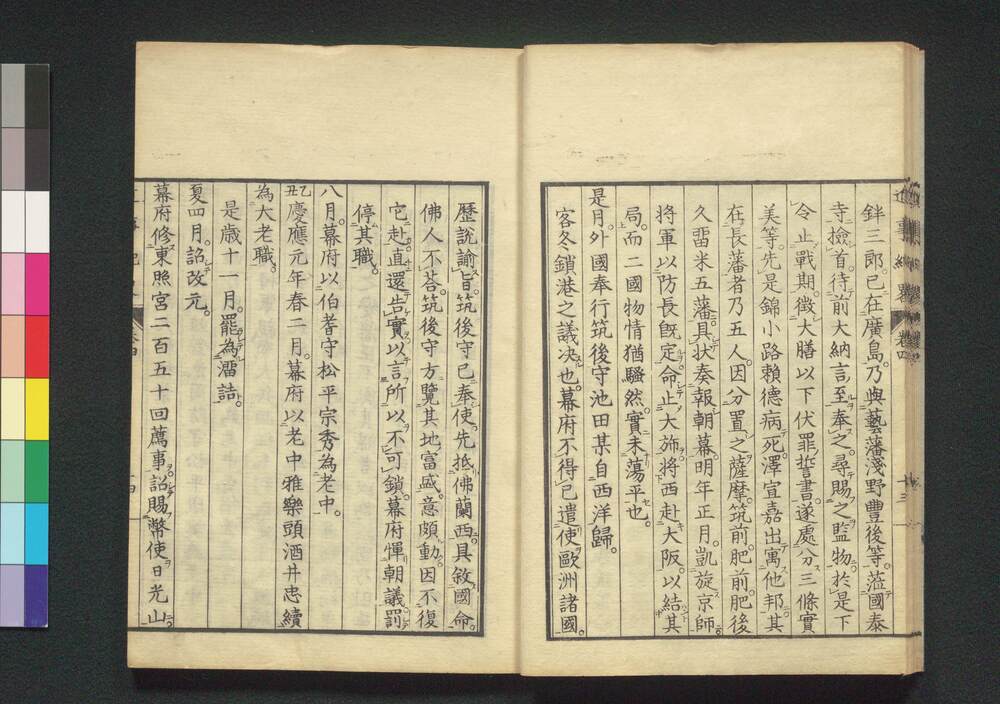 鉡三郎已在廣島。乃與藝藩淺野豐後等。蒞國泰
寺。檢首。待前大納言至奉之。尋賜之監物。於是下
令止戰期。徵大膳以下伏罪誓書。遂處分三條實
美等。先是錦小路賴德病死。澤宣嘉出寓他邦。其
在長藩者乃五人。因分置之薩摩。筑前。肥前。肥後
久畱米五藩。具狀奏報朝幕。明年正月。凱旋京師。
將軍以防長旣定。命止大斾。將西赴大阪。以結其
局。而二國物情猶騷然。實未蕩平也。
是月。外國奉行筑後守池田某自西洋歸。
客冬鎖港之議决也。幕府不得已遣使歐洲諸國。
歷說諭旨。筑後守已奉使。先抵佛蘭西。具敘國命。
佛人不荅。筑後守方覽其地富盛。意頗動。因不復
它赴。直還告實。以言所以不可鎖。幕府憚朝議罰
停其職。
八月。幕府以伯耆守松平宗秀為老中。
乙丑慶應元年春二月。幕府以老中雅樂頭酒井忠績
為大老職。
是歳十一月。罷為溜詰。
夏四月。詔改元。
幕府修東照宮二百五十回薦事。詔賜幣使日光山